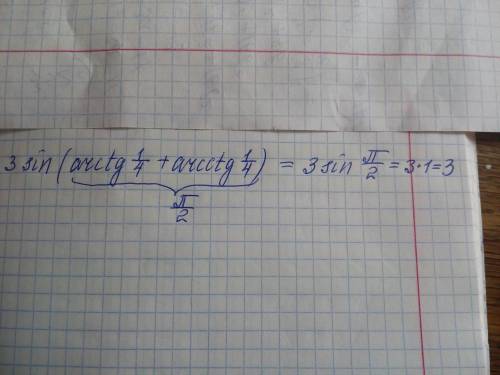 3 sin (arctg 1/4 + arcctg 1/4) = 3 sin π/2 = 3·1=3
π/2